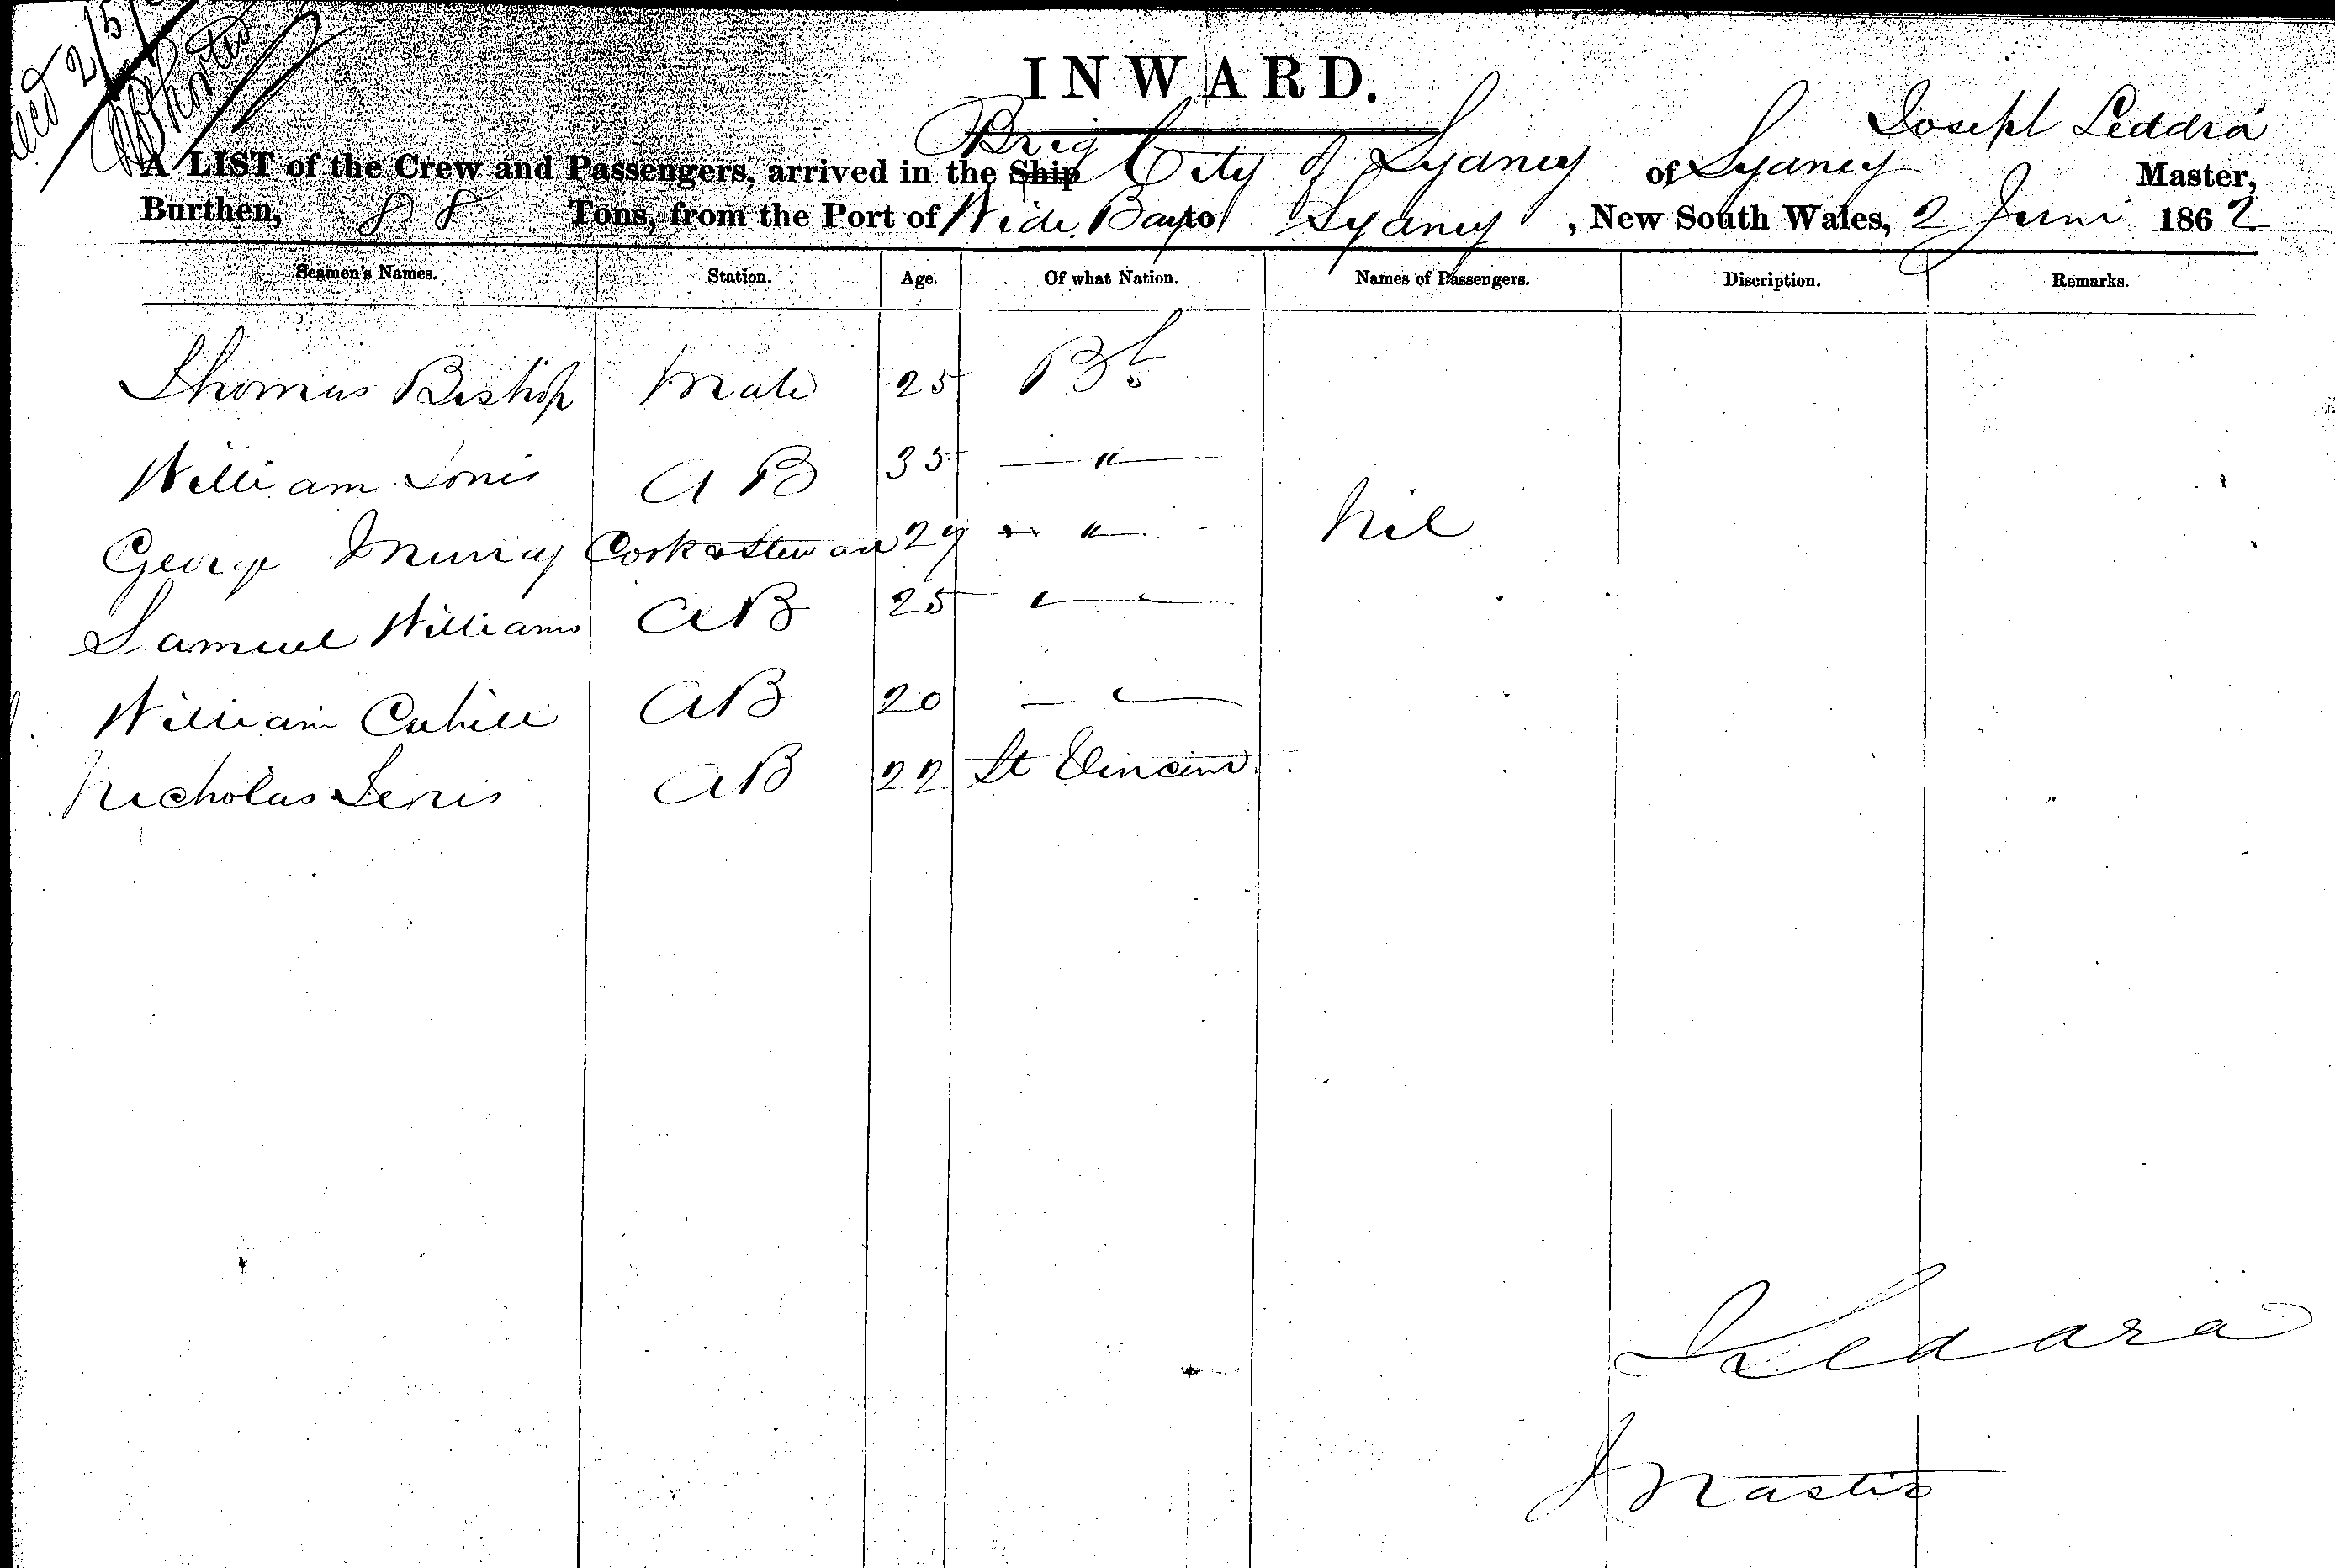 INWARD.
A LIST of the Crew and Passengers, arrived in the Ship Brig City of Sydney of Sydney Joseph Leddra Master,
Burthen, 88 Tons, from the Port of Wide Bay to Sydney, New South Wales, 2 June 1862
Seamen's Names. Station. Age. Of what Nation. Names of Passengers. Discription. Remarks.
Thomas Bishop Mate 25 Bt
William A B 35 — " —
George Murray Cook & Steward 29 " nil
Samuel Williams AB 25 — " —
William Cahill AB 20 — " —
Nicholas AB 22 St Vincent
Leddra
Master